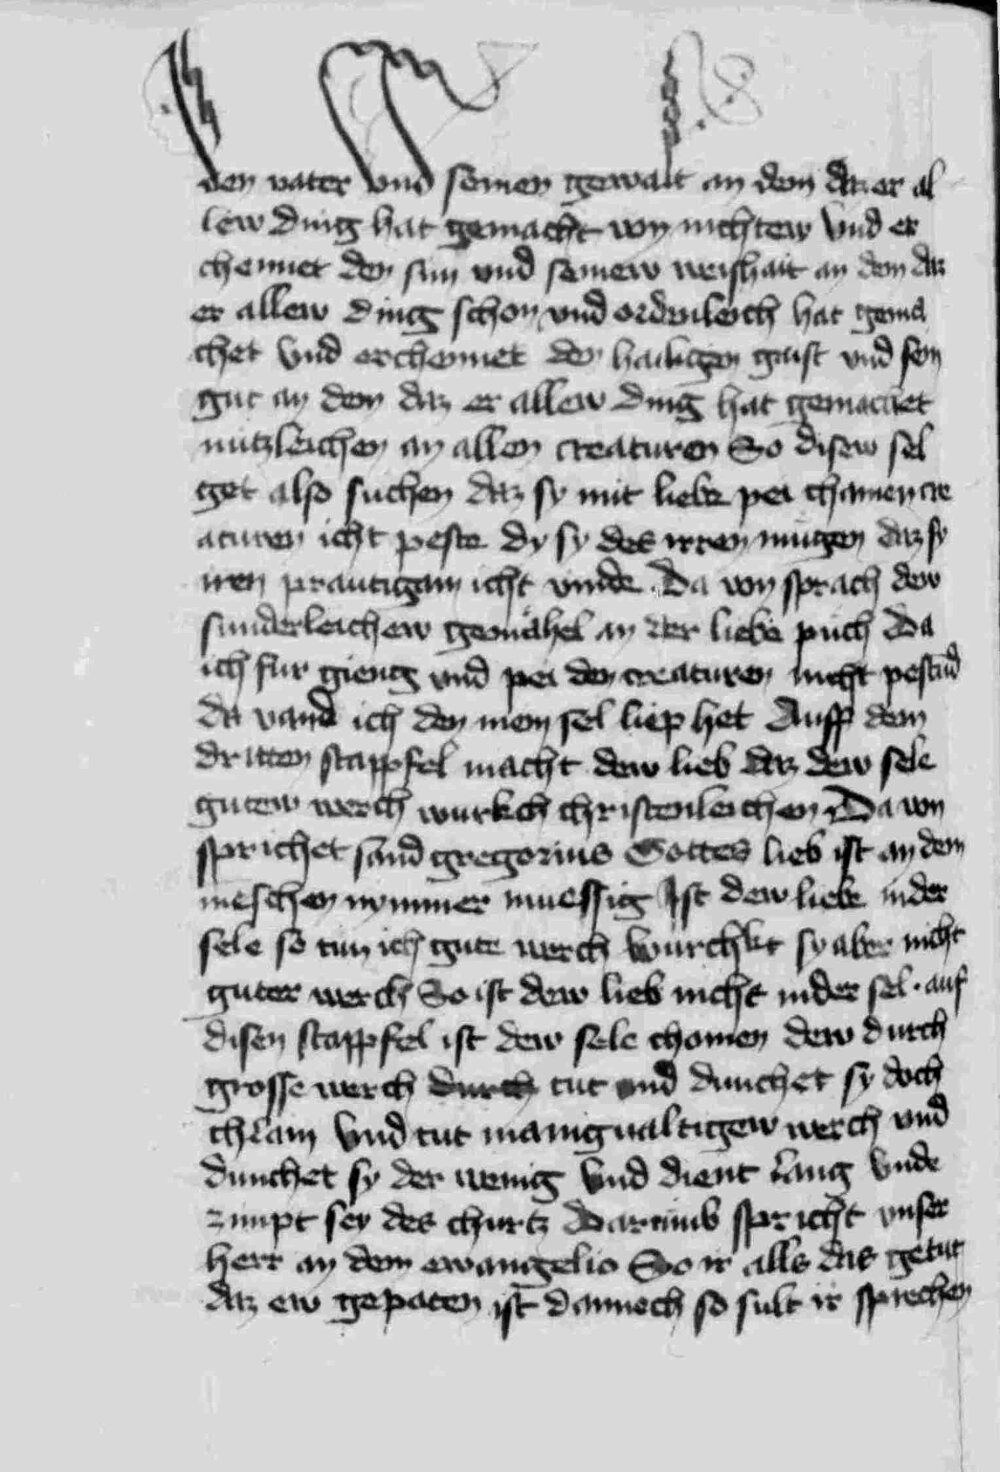 den vater vnd seinen gewalt an dem daz er al
lew ding hat gemacht von nichtew Vnd er
chennet den sun vnd seinew weishait an dem daz
er allew ding schon vnd ordenleich hat gema
chet Vnd erchennet den hailigen gaist vnd sein
gut an dem daz er allew ding hat gemachet
nutzleichen an allen creaturen So disew sel
get also suchen daz sy mit liebe pei chainen cre
aturen icht peste dy sy des irren mugen daz sy
iren prautigam icht vinde Da von sprach dew
sunderleichew gemahel an der liebe puch Da
ich fur gieng vnd pei den creaturen nicht pestund
da vand ich den mein sel liep het Auff dem
dritten stappfel macht dew lieb daz dew sele
gutew werch wurkch christenleichen Da von
sprichet sand gregorius Gottes lieb ist an dem
meschen nymmer muessig Ist dew liebe in der
sele so tun ich gute werch wurchkt sy aber nicht
guter werch So ist dew lieb nicht in der sel · auf
disen stappfel ist dew sele chomen dew durch
grosse werch durch tut vnd dunchet sy doch
chlain Vnd tut manigualtigew werch vnd
dunchet sy der wenig Vnd dient lang Vnde
zimpt sey des churtz Darumb spricht vnser
herr an dem ewangelio So ir alls das getut
daz ew gepoten ist dannoch so sult ir sprechen